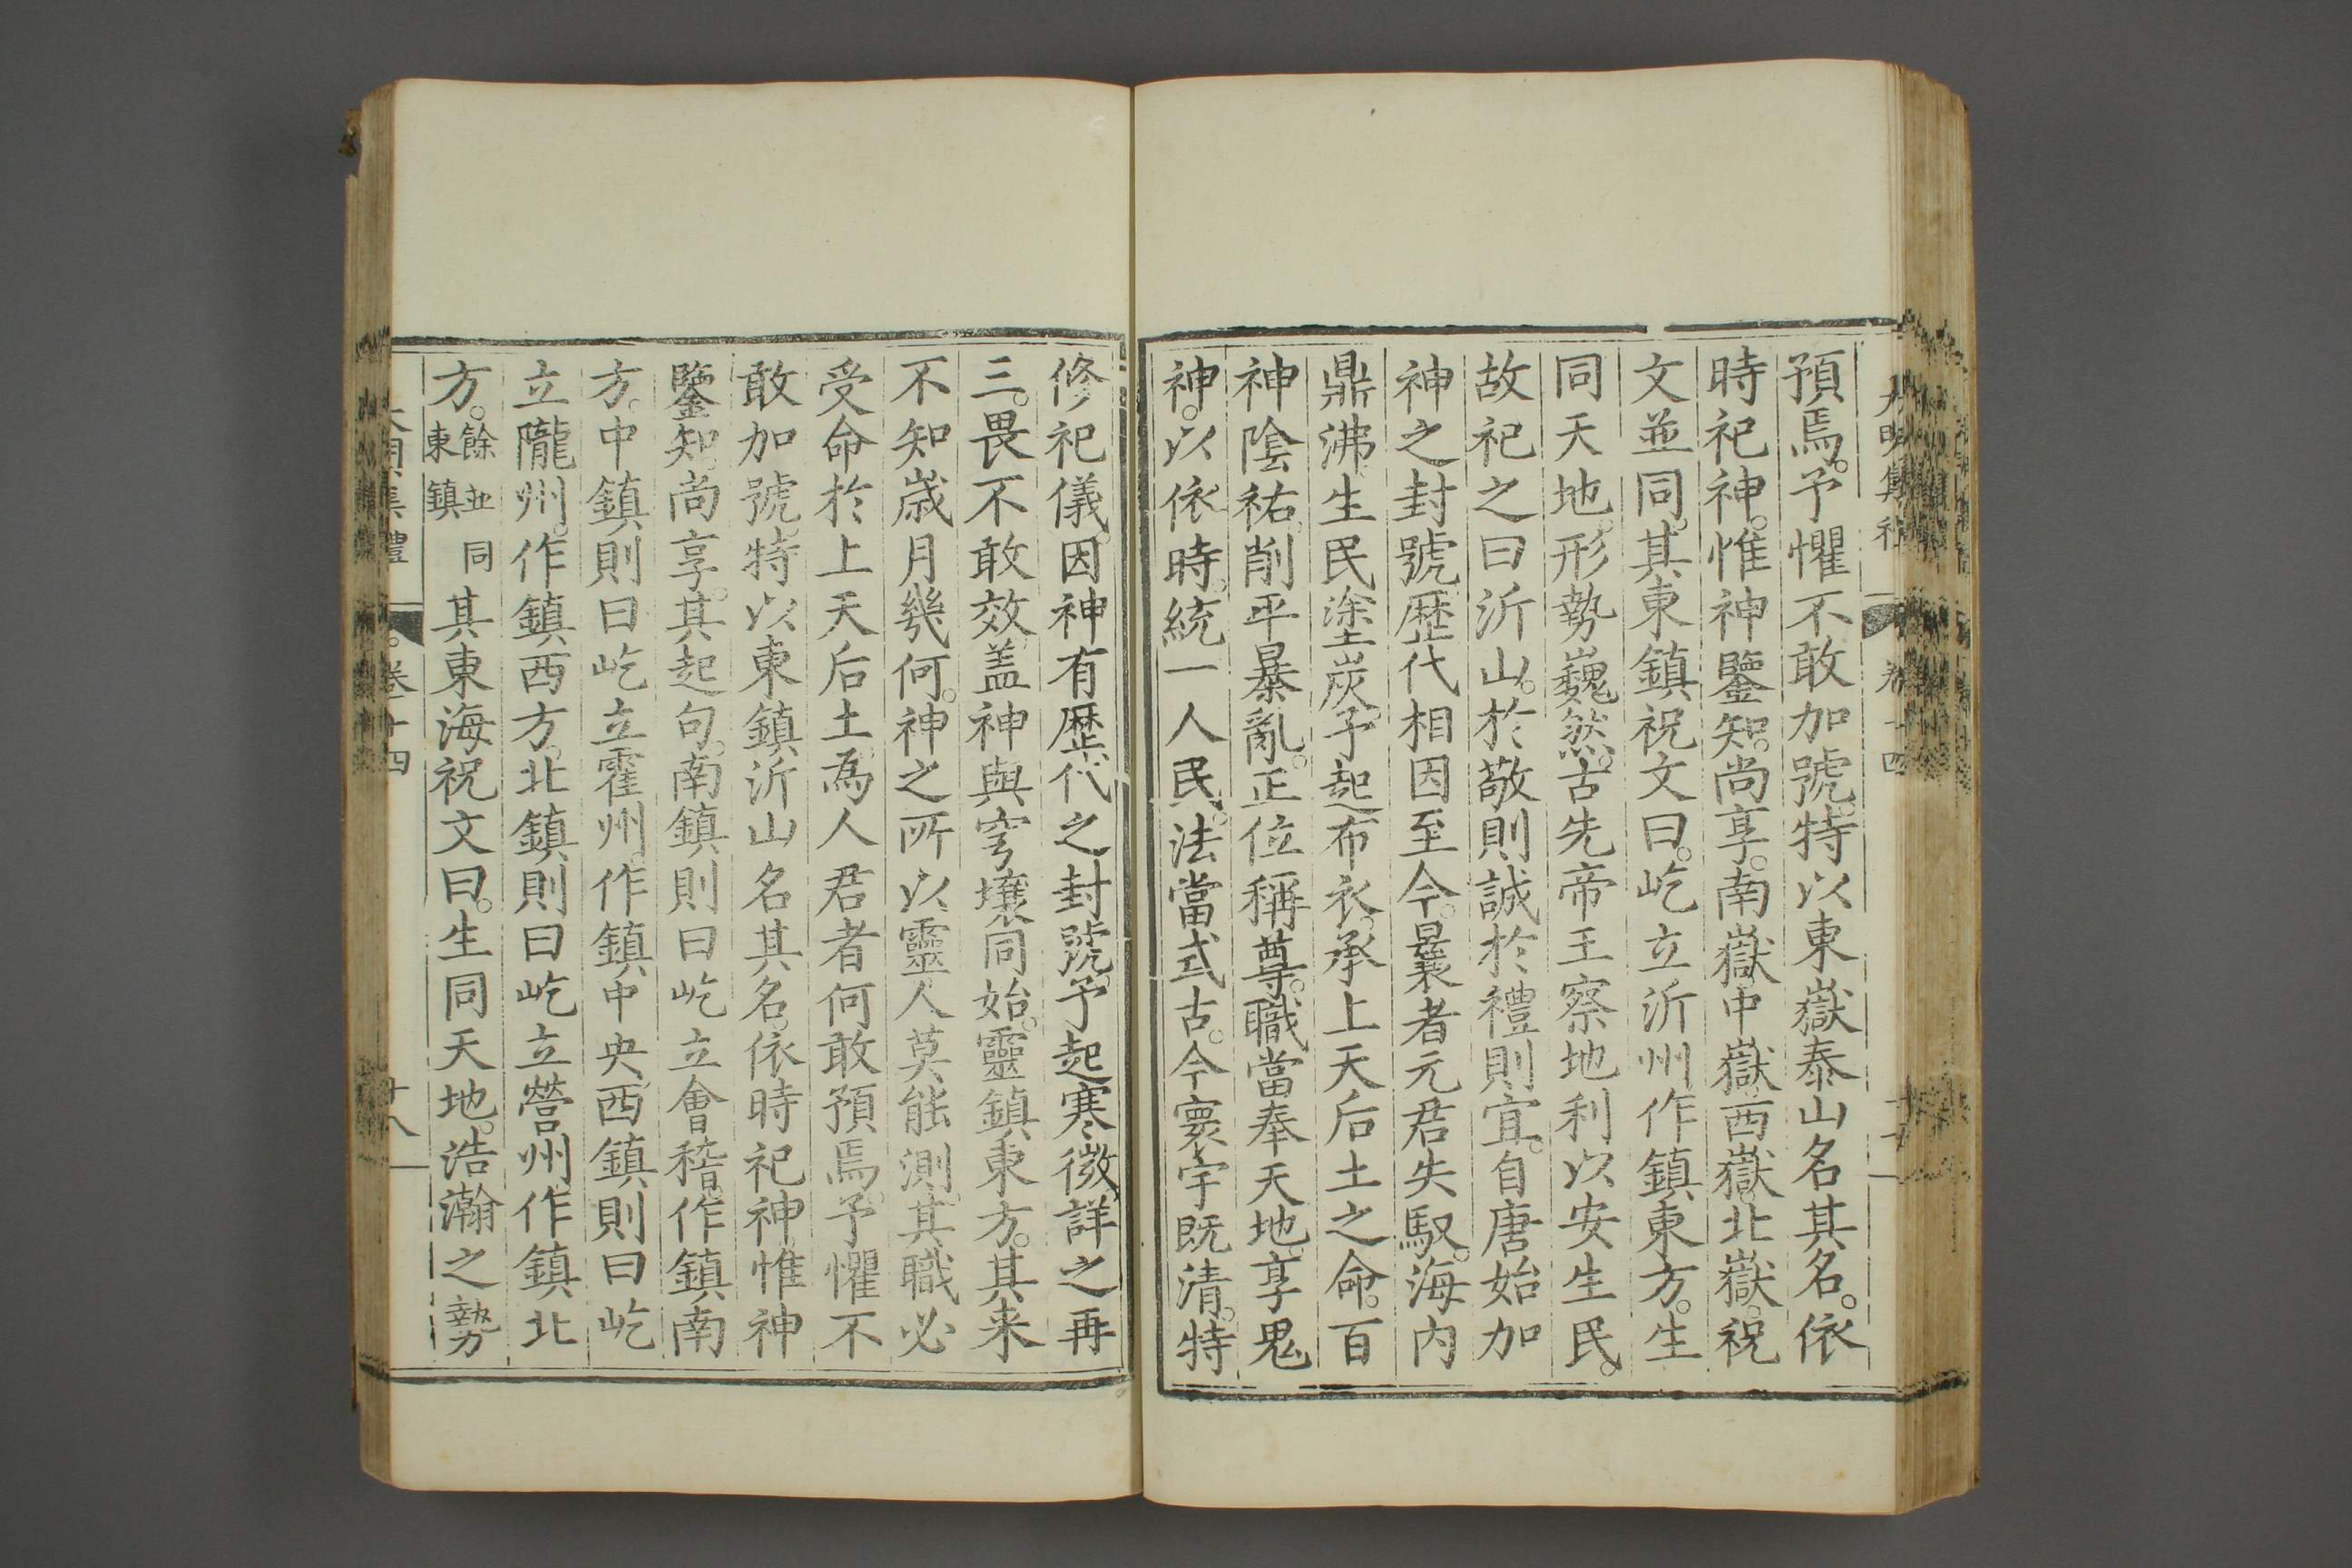 預焉。予懼不敢加號。特以東嶽泰山名其名。依
時祀神。惟神鑒知。尚享。南嶽中嶽西嶽。北嶽。祝
文並同。其東鎮祝文曰。屹立沂州作鎮東方。生
同天地。形勢巍然。古先帝王察地利以安生民。
故祀之曰沂山。於敬則誠於禮則宜。自唐始加
神之封號。歷代相因至今。曩者元君失馭。海內
鼎沸。生民塗炭。予起布衣。承上天后土之命。百
神陰祐。削平暴亂。正位稱尊。職當奉天地。享鬼
神。以依時。統一人民。法當式古。今寰宇既清。特
修祀儀。因神有歷代之封號。予起寒微。詳之再
三。畏不敢效。盖神與穹壤同始。靈鎮東方。其来
不知歲月幾何。神之所以靈。人莫能測。其職必
受命於上天后土。為人君者何敢預焉。予懼不
敢加號。特以東鎮沂山名其名。依時祀神。惟神
鑒知。尚享。其起句。南鎮則曰屹立會稽。作鎮南
方。中鎮則曰屹立霍州。作鎮中央。西鎮則曰屹
立隴州。作鎮西方。北鎮則曰屹立營州。作鎮北
方。餘並同東鎮其東海祝文曰。生同天地。浩瀚之勢
卷十四
十八